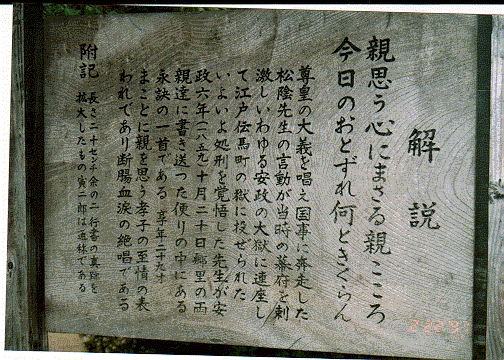 解説
親思う心にまさる親ごころ
今日のおとずれ何ときくらん
尊皇の大義を唱え国事に奔走した
松陰先生の言動が当時の幕府を刺
激しいわゆる安政の大獄に連座し
て江戸伝馬町の獄に投ぜられた
いよいよ処刑を覚悟した先生が安
政六年(一八五九)十月二十日郷里の両
親達に書き送った便りの中にある
永訣の一首である 享年二十九才
まことに親を思う孝子の至情の表
われであり断腸血涙の絶唱である
附記 長さ二十センチ余の二行書の真蹟を
拡大したもの寅二郎は通称である